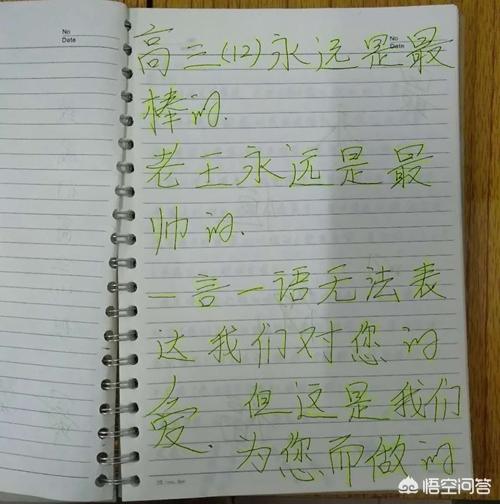 No
Date
No
Date
高三(12)永远是最
棒的.
老王永远是最
帅的.
一言一语无法表
达我们对您的
爱.但这是我们
为您而做的
悟空问答